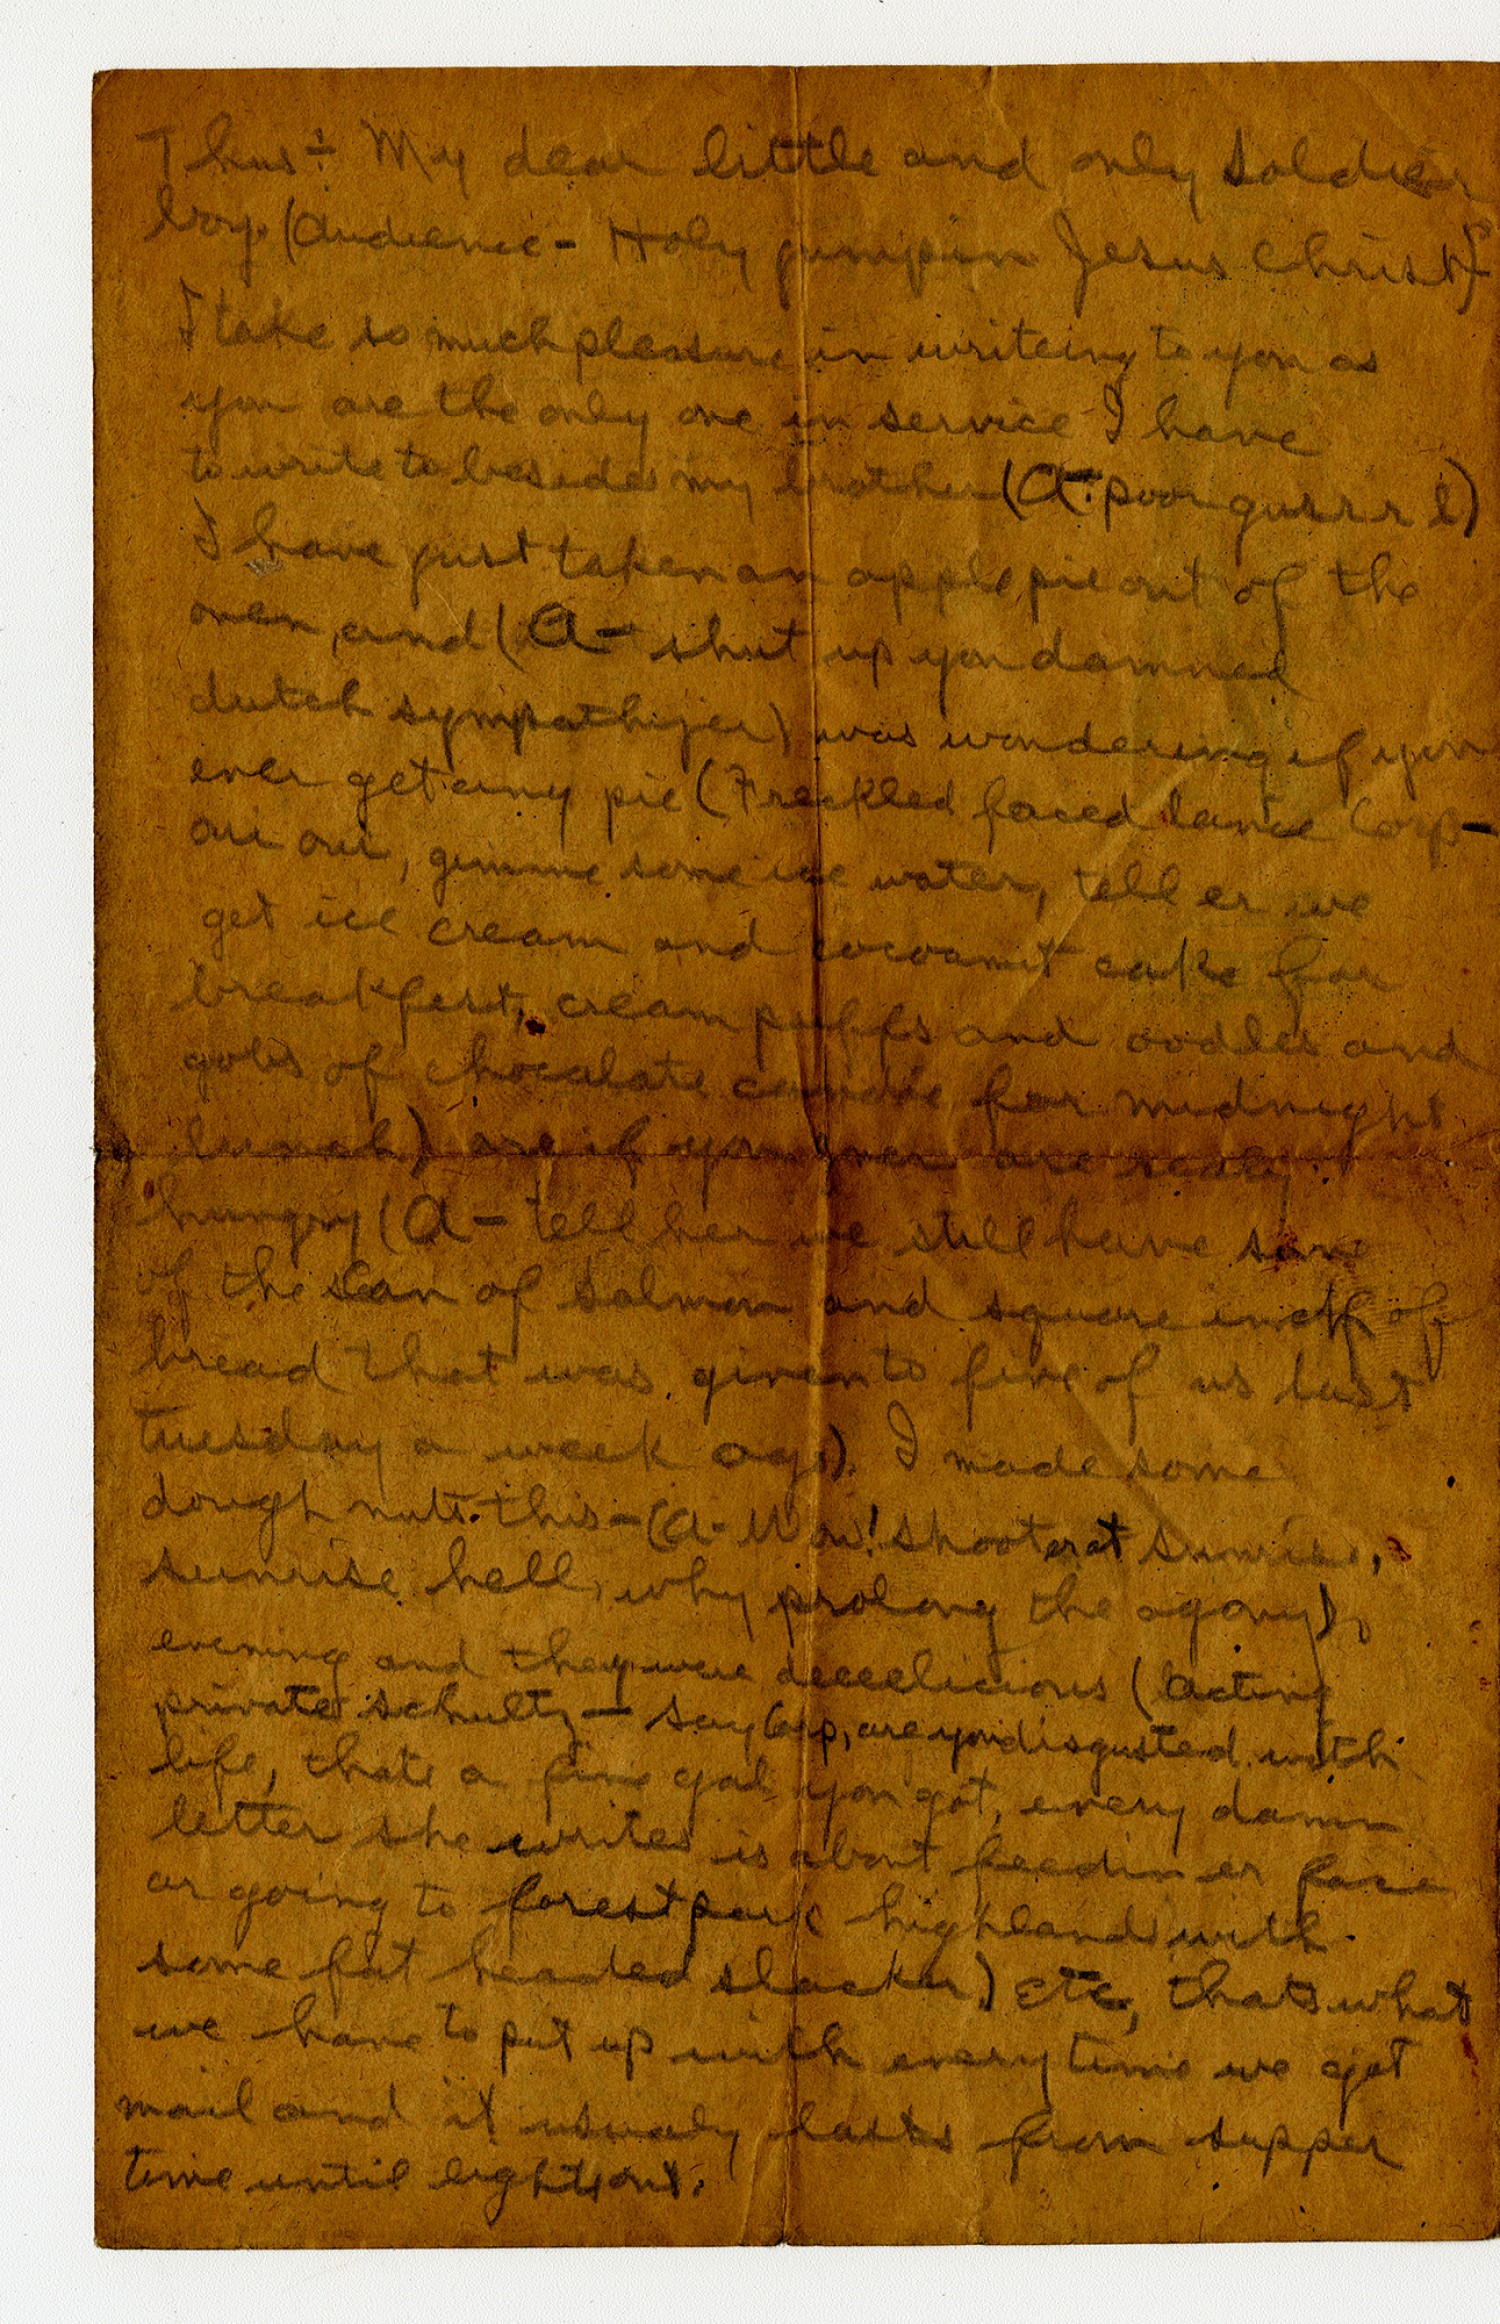 Thus÷ My dear little and only soldier
boy. (Audience- Holy jumpin Jesus Christ)
I take so much pleasure in writeing to you as
you are the only one in service I have
to write to beside my brother (A-: poor gurrrl)
I have just taken an apple pie out of the
oven, and (A- shut up you damned
dutch sympathizer) was wondering if you
ever get any pie (Freckled faced lance Corp-
oui oui, gimme some ice water, tell er we
get ice cream and cocoanut cake for
breakfest, cream puffs and oodles and
gobs of chocalate candie for midnight
lunch) are if you ever are realy
hungry (A- tell her we still have some
of the can of salmon and square inch of
bread that was given to five of us last
tuesday a week ago). I made some
dough nuts this-(A- Wow! shoot er at sunrise,
sunrise hell, why prolong the agony),
evening and they were deeelicious (Acting
private schultz- say Corp, are you disgusted with
life, thats a fine gal you got, every damn
letter she writes is about feedin er face
or going to forest park highland with
some fat headed slacker) etc, thats what
we have to put up with every time we get
mail and it usualy lasts from supper
time until lights out.